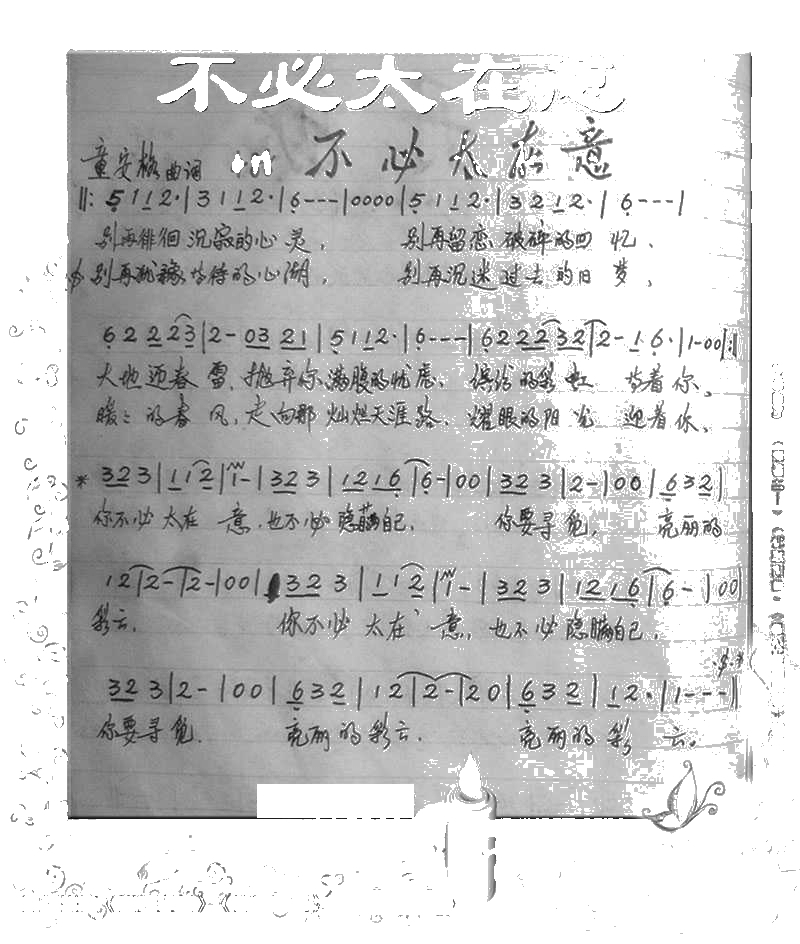 不必太在意
童安格 曲词 不必太在意
‖: 5 1 1 2·|3 1 1 2·|6---|0000|5 1 1 2·|3 2 1 2·|6---|
别再徘徊沉寂的心灵, 别再留恋破碎的回忆、
别再 的心湖, 别再沉迷过去的日梦,
6 2 2 2 3|2- 03 21|5 1 1 2·|6---|6 2 2 2 3 2|2- 1 6·|1-00:‖
大地迎春雷,抛弃你满腹的忧虑、缤纷的彩虹 等着你。
暖暖的春风,走向那灿烂天涯路、耀眼的阳光 迎着你、
* 3 2 3|1 1 2|1-|3 2 3|1 2 1 6|6-|00|3 2 3|2-|00|6 3 2|
你不必太在意,也不必隐瞒自己. 你要寻觅, 亮丽的
1 2|2-|2-|00|3 2 3|1 1 2|1-|3 2 3|1 2 1 6|6-|00
彩云. 你不必太在意,也不必隐瞒自己.
3 2 3|2-|00|6 3 2|1 2|2-|2 0|6 3 2|1 2·|1---‖
你要寻觅. 亮丽的彩云. 亮丽的彩云。